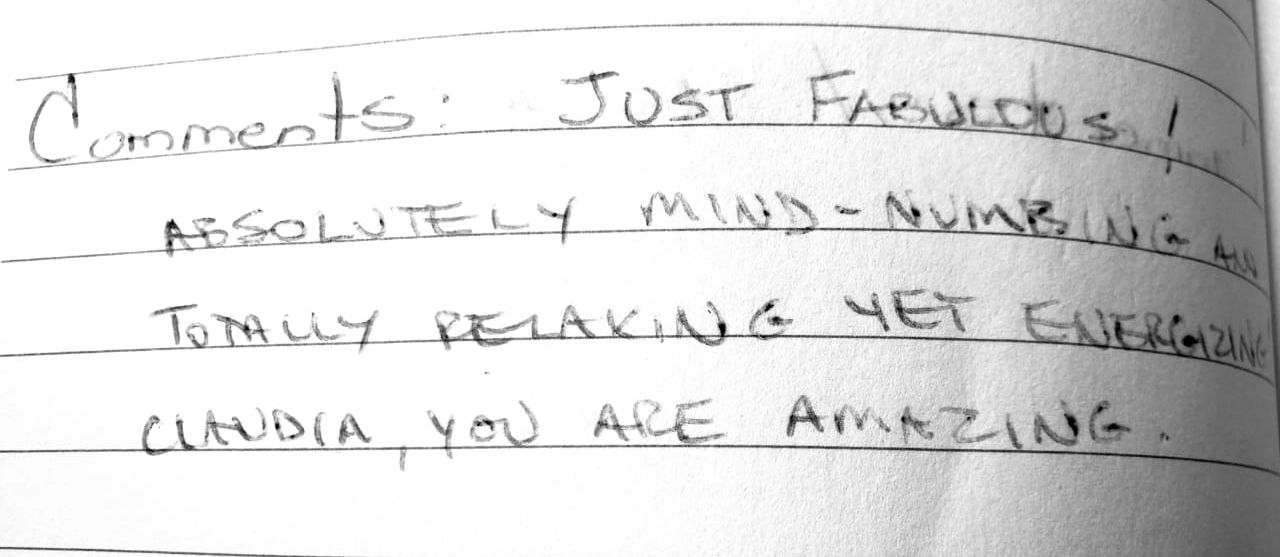 Comments: JUST FABULOUS!
ABSOLUTELY MIND-NUMBING AND
TOTALLY RELAXING YET ENERGIZING
CLAUDIA, YOU ARE AMAZING.